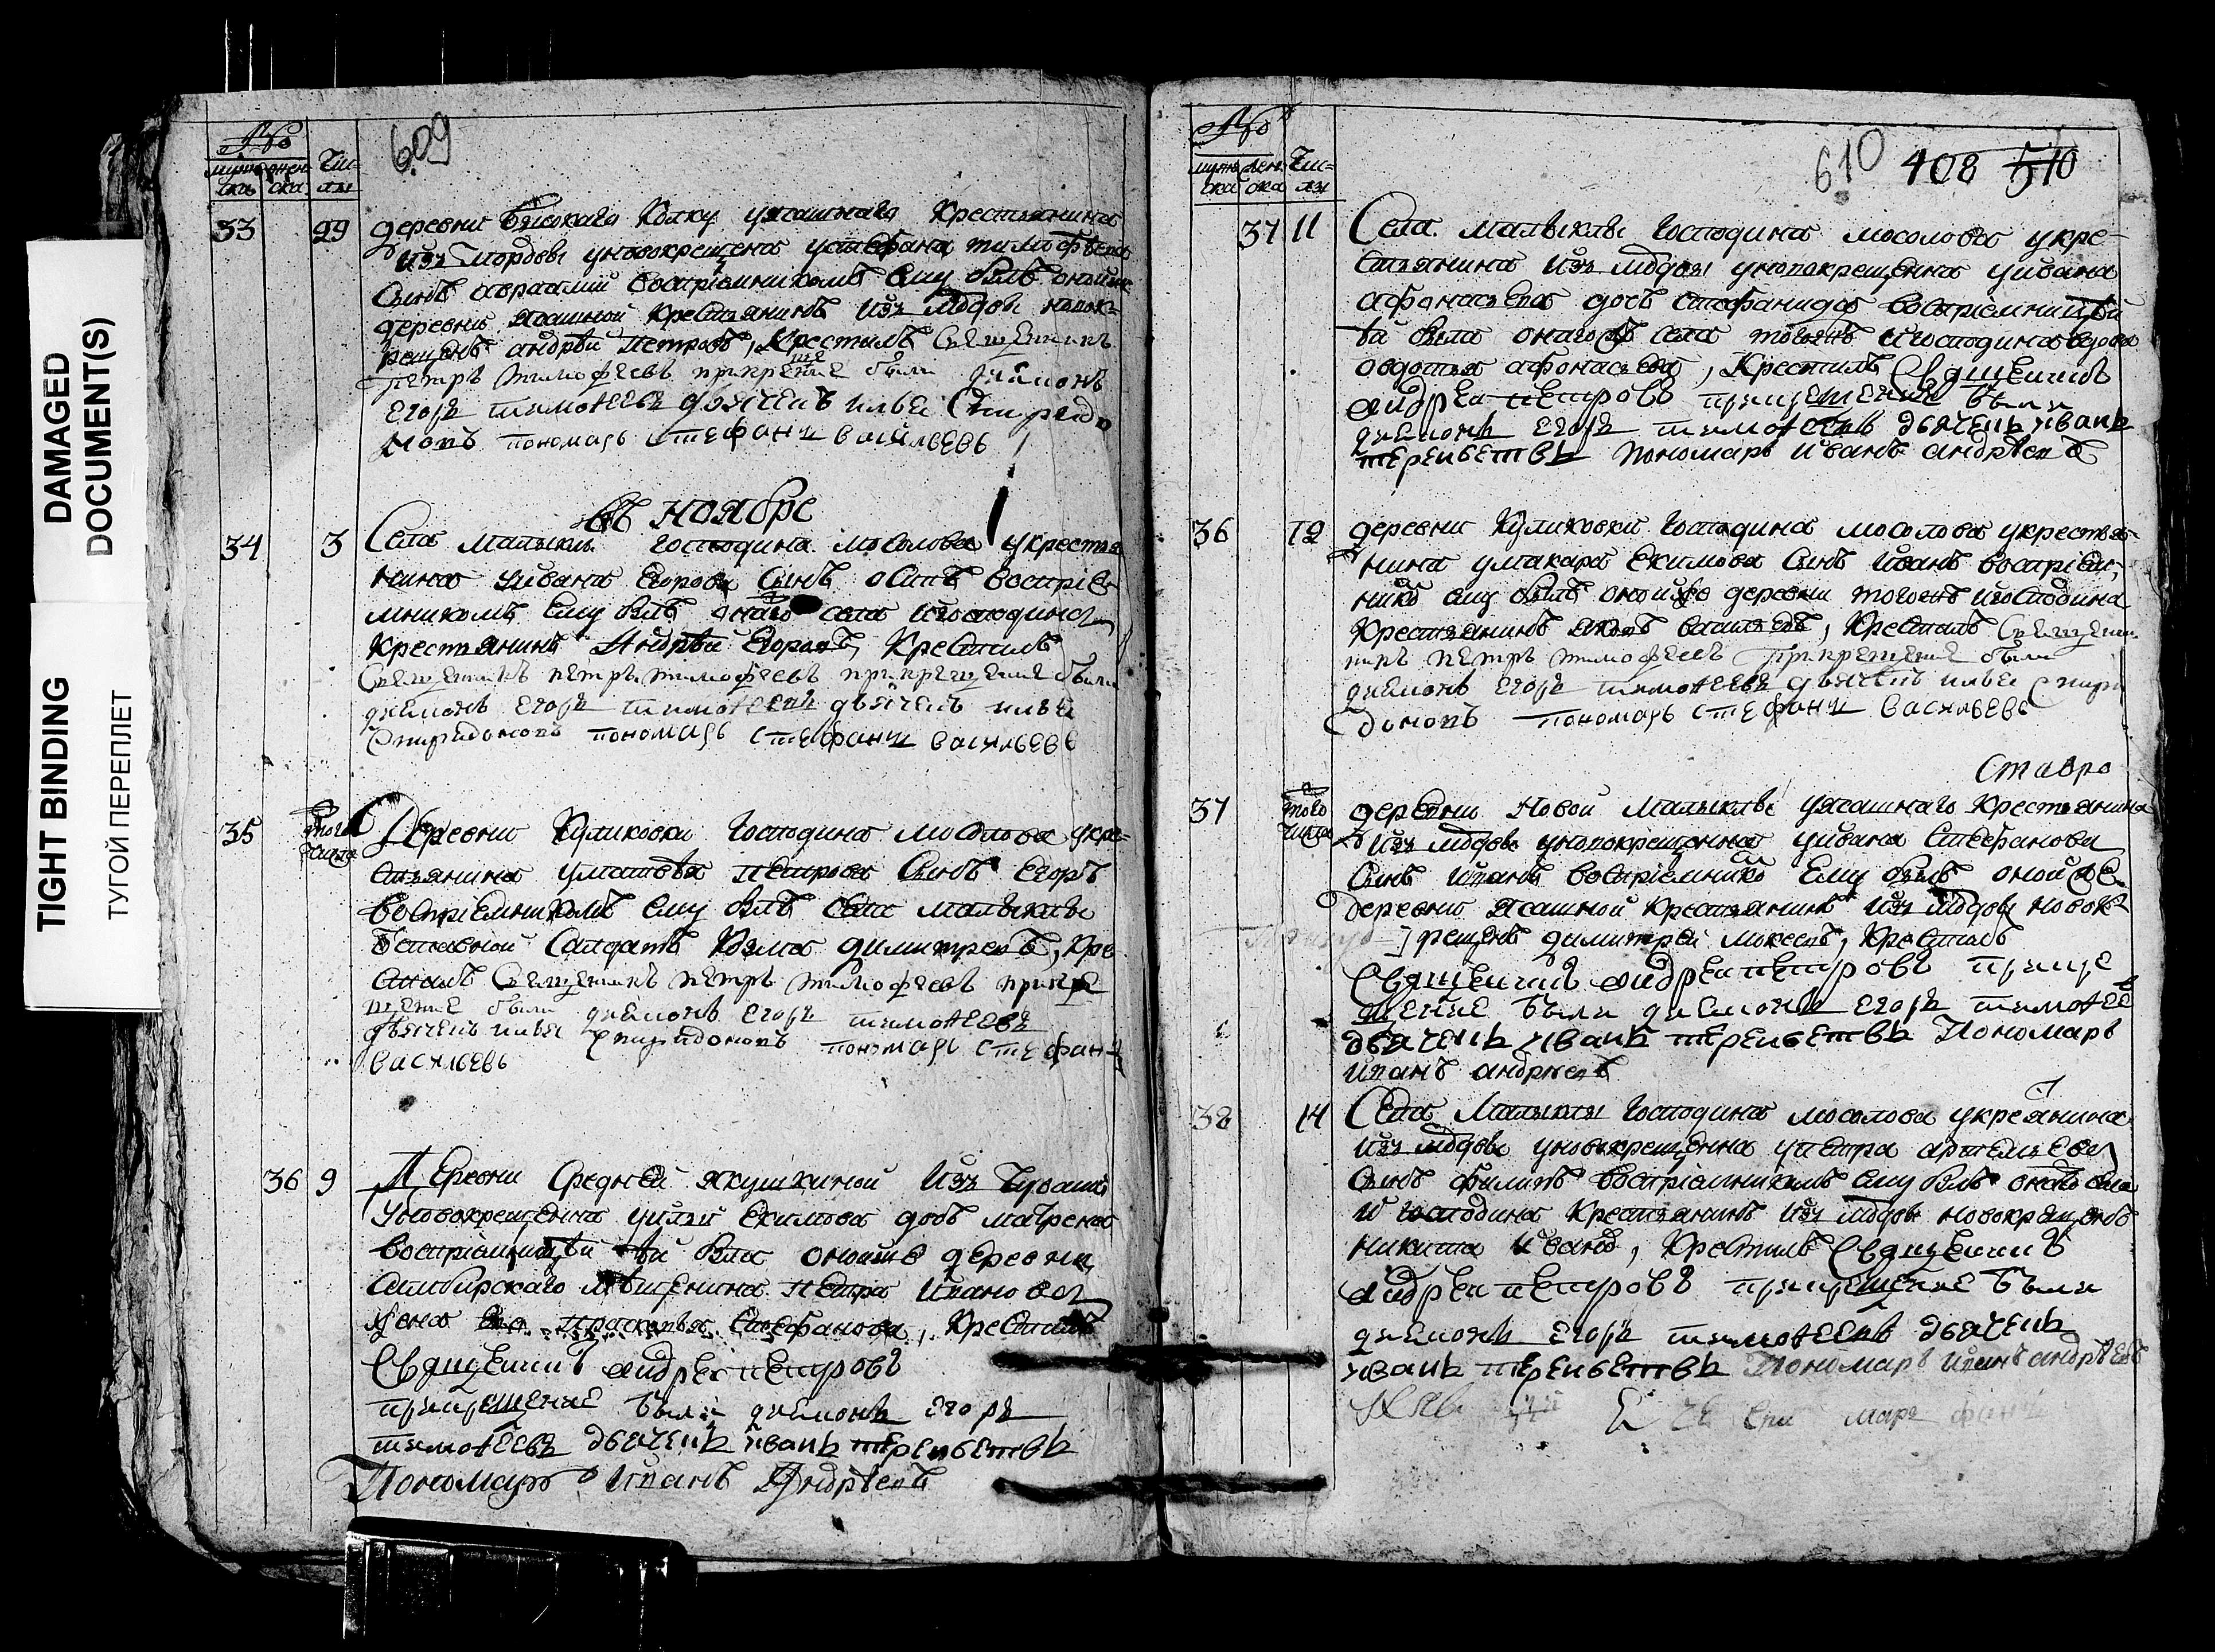 DAMAGED
DOCUMENT(S)
TIGHT BINDING
ТУГОЙ ПЕРЕПЛЕТ
№
мужеска женска Числы
609
33 29 деревни Высокаго Колку уясашнаго крестьянина
изъ мордвы уновокрещена устефана тимофеева
Сынъ авраамий восприемникомъ ему былъ оной же
деревни ясашной крестьянинъ изъ мордвы новок-
рещенъ андрѣй петровъ, крестилъ Священникъ
петръ тимофеевъ прикрещение были диаконъ
егоръ тимоѳеевъ дьячекъ илья Спиридо
новъ пономарь стефанъ васильевъ
въ Ноябре
34 3 Села Малыклы господина мосолова укрестья
нина уивана Егорова Сынъ осипъ восприе
мникомъ ему былъ онаго села игосподина
крестьянинъ Андрѣй Егоровъ, Крестилъ
Священникъ петръ тимофеевъ прикрещение были
диаконъ егоръ тимоѳеевъ дьячекъ илья
Спиридоновъ пономарь стефанъ васильевъ
35 того числа Деревни Куликовки Господина мосолова укре-
стьянина уматвѣя петрова Сынъ Егоръ
восприемникомъ ему былъ села малыклы
отставной Салдатъ Козма димитреевъ, Кре
стилъ Священникъ петръ тимофеевъ прикре
щение были диаконъ егоръ тимоѳеевъ
дьячекъ илья спиридоновъ пономарь стефанъ
васильевъ
36 9 Деревни Средней якушкиной изъ Чувашъ
уновокрещенна уильи Екимова дочь матрена
восприемницей ей была оной же деревни
Симбирскаго мѣщенина петра иванова
жена ево прасковья Стефанова, Крестилъ
Священникъ андреи петровъ
прикрещение были диаконъ егоръ
тимоѳеевъ дьячекъ иванъ терентьевъ
Пономарь иванъ Андрѣевъ
№
мужеска женска Числы
610 408 510
37 11 Села малыклы Господина мосолова укре-
стьянина изъ мордвы уновокрещенна уивана
афонасьева дочь стефанида восприемницей
ей была онаго села того жъ игосподина вдова
авдотья афонасьева, Крестилъ Священникъ
андреи петровъ прикрещение были
диаконъ егоръ тимоѳеевъ дьячекъ иванъ
терентьевъ Пономарь иванъ андрѣевъ
36 12 деревни Куликовки Господина мосолова укрестья-
нина умакара Екимова Сынъ иванъ восприем-
никъ ему былъ оной же деревни того жъ игосподина
крестьянинъ яковъ васильевъ, Крестилъ Священ
никъ петръ тимофеевъ прикрещение были
диаконъ егоръ тимоѳеевъ дьячекъ илья Спири
доновъ пономарь стефанъ васильевъ
Ставро
37 того числа деревни Новой Малыклы уясашнаго крестьянина
изъ мордвы уновокрещенна уивана Стефанова
Сынъ иванъ восприемникъ Ему былъ оной же
деревни ясашной крестьянинъ изъ мордвы новок-
рещенъ димитрей мокеевъ, Крестилъ
Священникъ андреи петровъ прикре
щение были диаконъ егоръ тимоѳеевъ
дьячекъ иванъ терентьевъ Пономарь
иванъ андрѣевъ
38 14 Села Малыклы Господина мосолова укрестьянина
изъ мордвы уновокрещенна упетра артемьева
Сынъ филипъ восприемникомъ ему былъ онаго села
и господина крестьянинъ изъ мордвы новокрещенъ
никита ивановъ, Крестилъ Священникъ
андреи петровъ прикрещение были
диаконъ егоръ тимоѳеевъ дьячекъ
иванъ терентьевъ Пономарь иванъ андрѣевъ